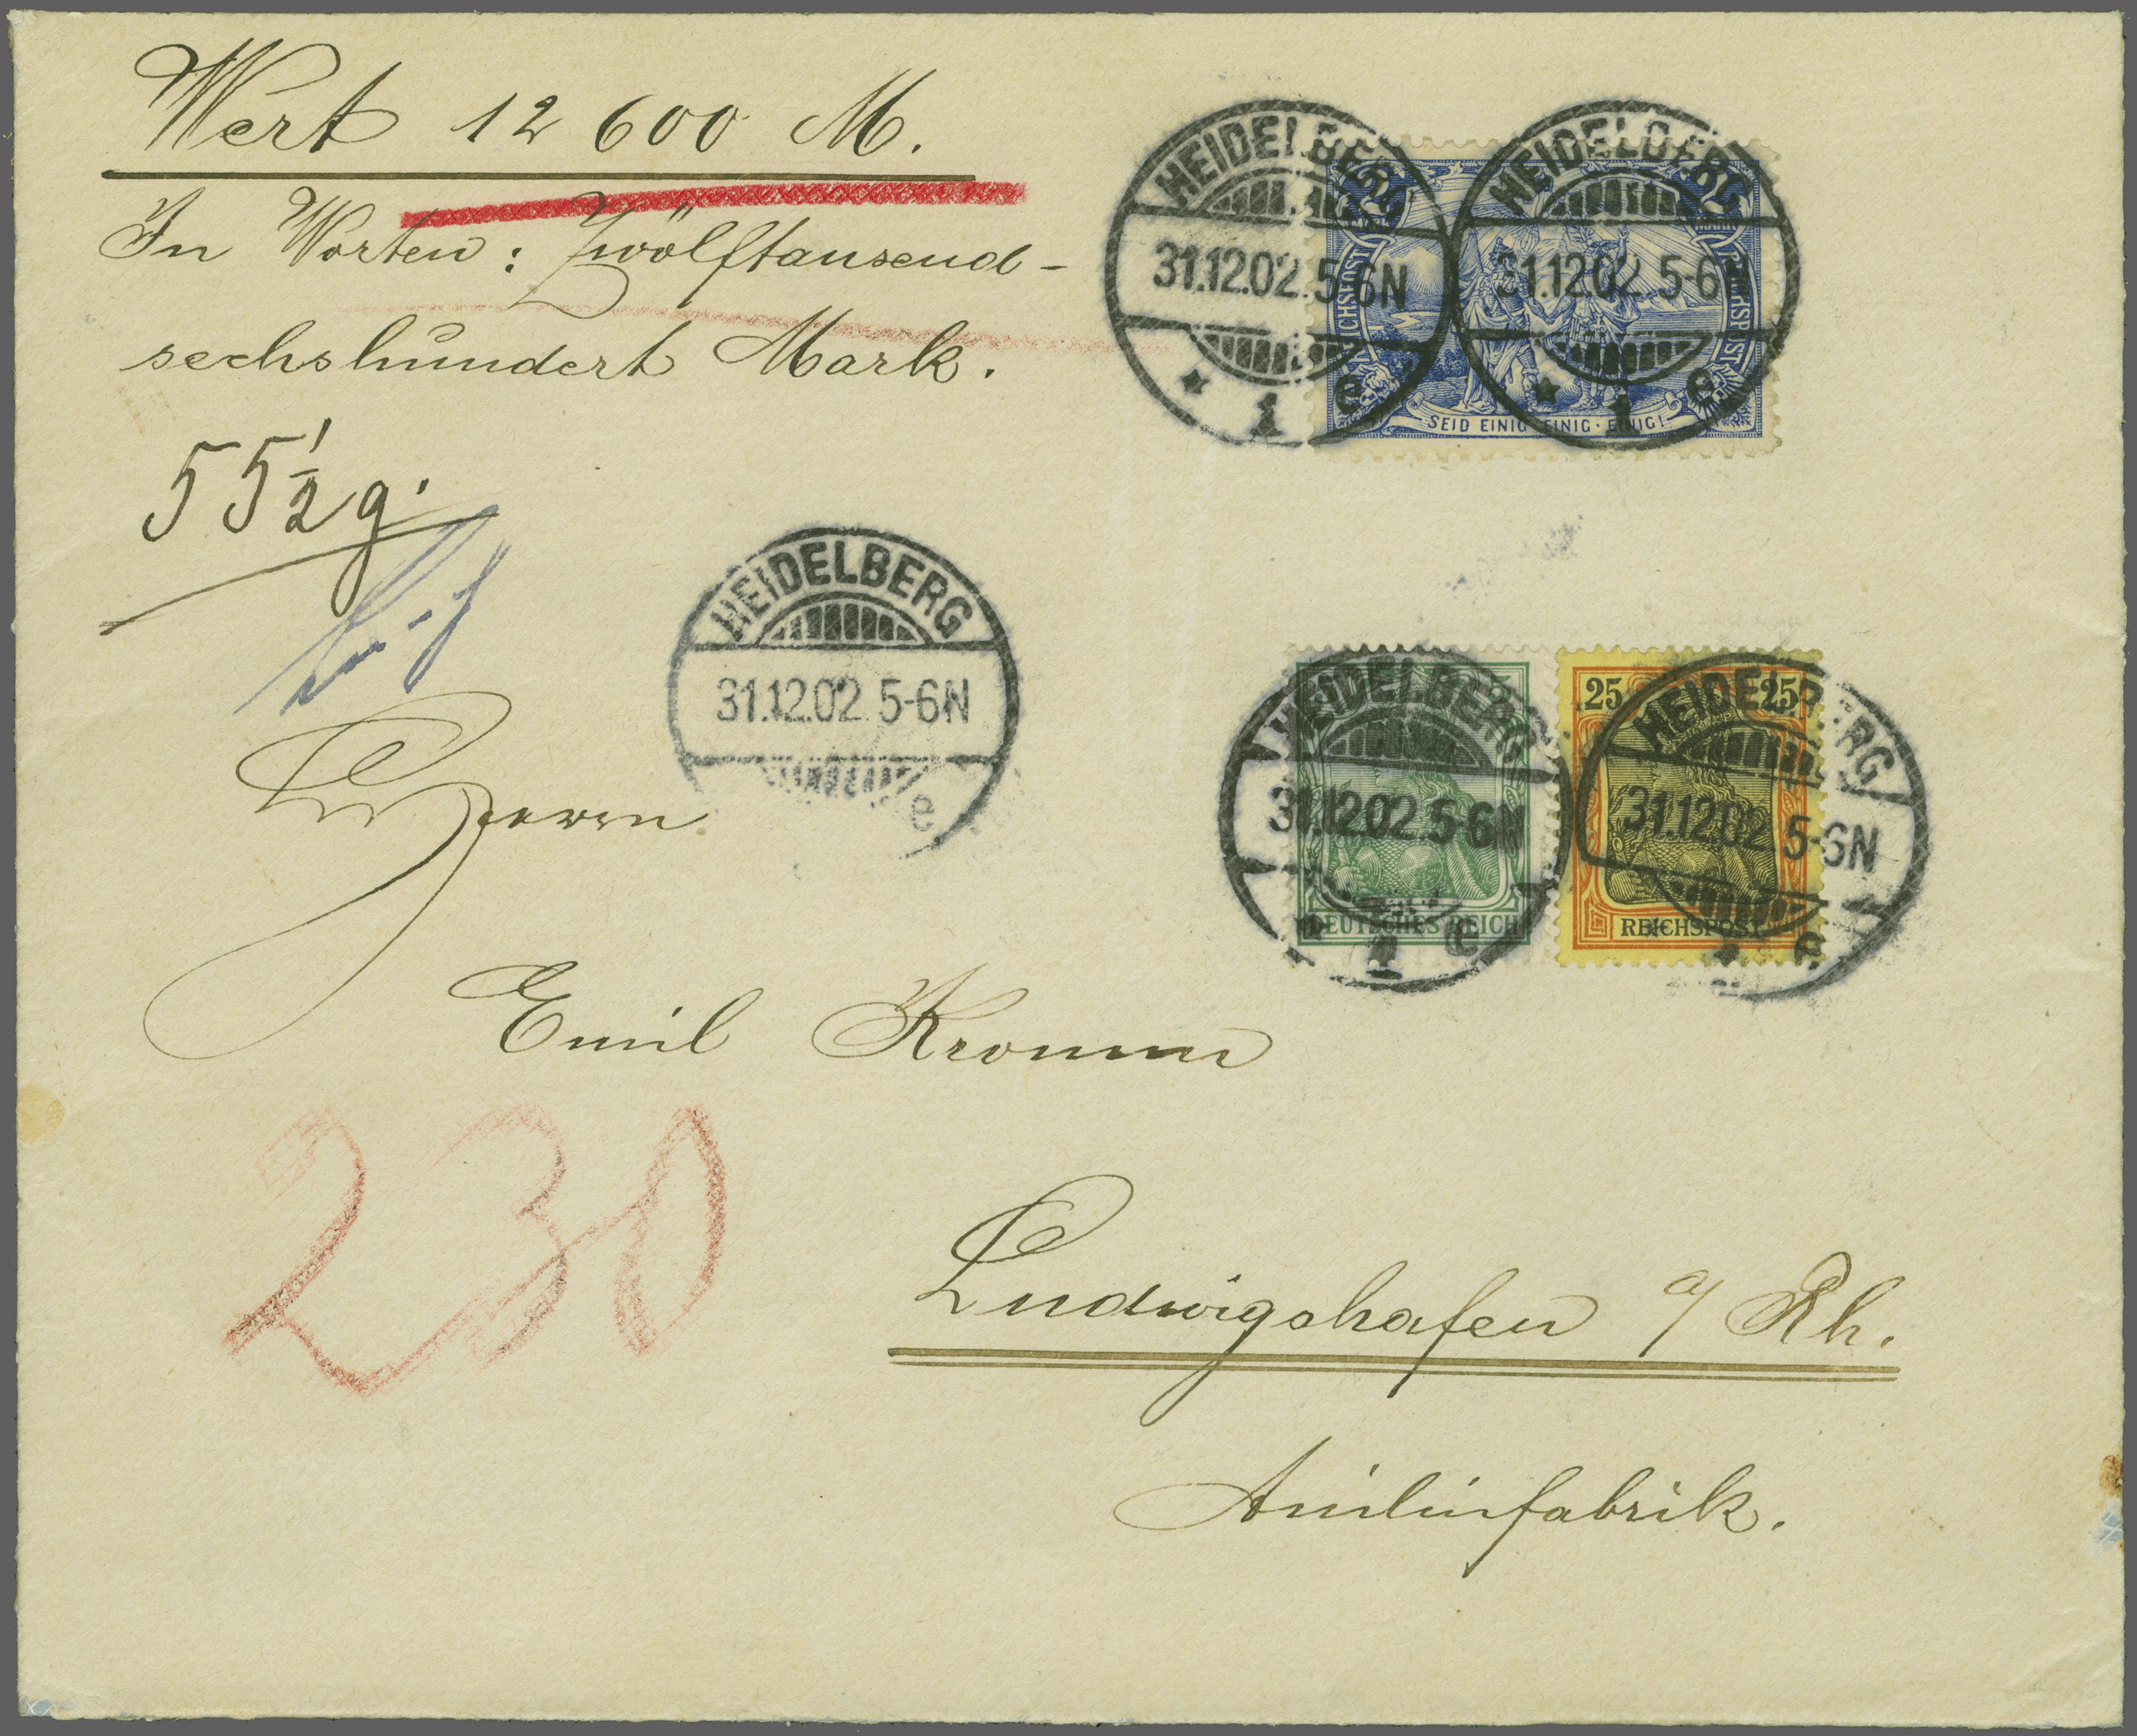 Wert 12 600 M.
In Worten: Zwölftausend-
sechshundert Mark.
55 1/2 g.
HEIDELBERG
31.12.02. 5-6N
* 1 e
HEIDELBERG
31.12.02. 5-6N
* 1 e
2
MARK
2
MARK
REICHSPOST
REICHSPOST
SEID EINIG · EINIG · EINIG!
HEIDELBERG
31.12.02. 5-6N
e
HEIDELBERG
31.12.02. 5-6N
* 1 e
DEUTSCHES REICH
25
25
HEIDELBERG
31.12.02. 5-6N
e
REICHSPOST
Herrn
Emil Kromm
230
Ludwigshafen a/ Rh.
Anilinfabrik.